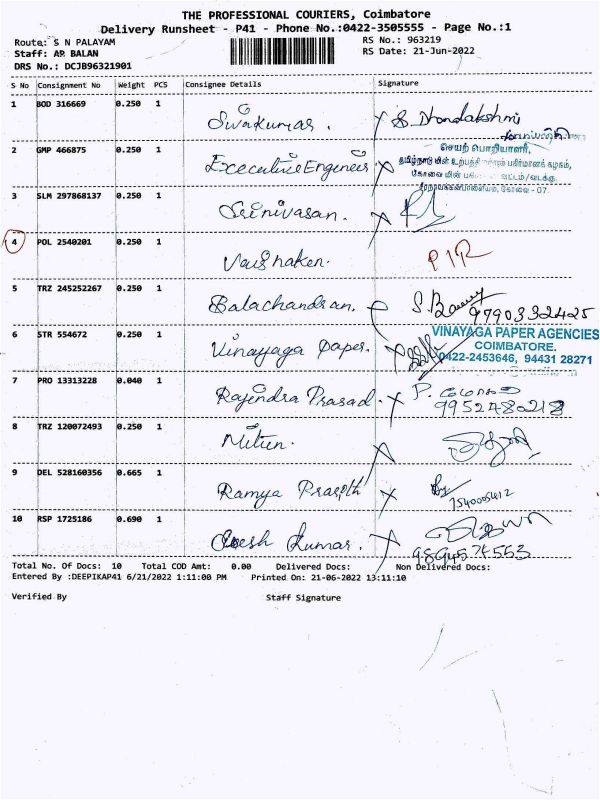 THE PROFESSIONAL COURIERS, Coimbatore
Delivery Runsheet - P41 - Phone No.:0422-3505555 - Page No.:1
Route: S N PALAYAM
RS No.: 963219
Staff: AR BALAN
RS Date: 21-Jun-2022
DRS No.: DCJB96321901
S No Consignment No Weight PCS Consignee Details Signature
1 BOD 316669 0.250 1 Sivakumar.
2 GMP 466875 0.250 1 Executive Engineer
செயற் பொறியாளர்,
3 SLM 297868137 0.250 1 Srinivasan.
4 POL 2540201 0.250 1
5 TRZ 245252267 0.250 1 Balachandran.
9790332425
6 STR 554672 0.250 1 Vinayaga paper.
VINAYAGA PAPER AGENCIES
COIMBATORE.
0422-2453646, 94431 28271
7 PRO 13313228 0.040 1 Rajendra Prasad. P.
9952480218
8 TRZ 120072493 0.250 1
9 DEL 528160356 0.665 1 Ramya
10 RSP 1725186 0.690 1 Kumar.
9894574553
Total No. Of Docs: 10 Total COD Amt: 0.00 Delivered Docs: Non Delivered Docs:
Entered By :DEEPIKAP41 6/21/2022 1:11:00 PM Printed On: 21-06-2022 13:11:10
Verified By Staff Signature